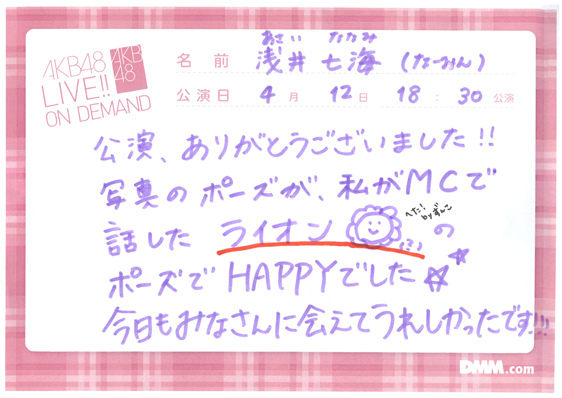 AKB48
LIVE!!
ON DEMAND
AKB
48
名前 浅井 七海 (なーみん)
あさい ななみ
公演日 4月 12日 18:30 公演
公演、ありがとうございました!!
写真のポーズが、私がMCで
話した ライオン (?) の
へた! byずんこ
ポーズでHAPPYでした☆☆
今日もみなさんに会えてうれしかったです!!!
DMM.com